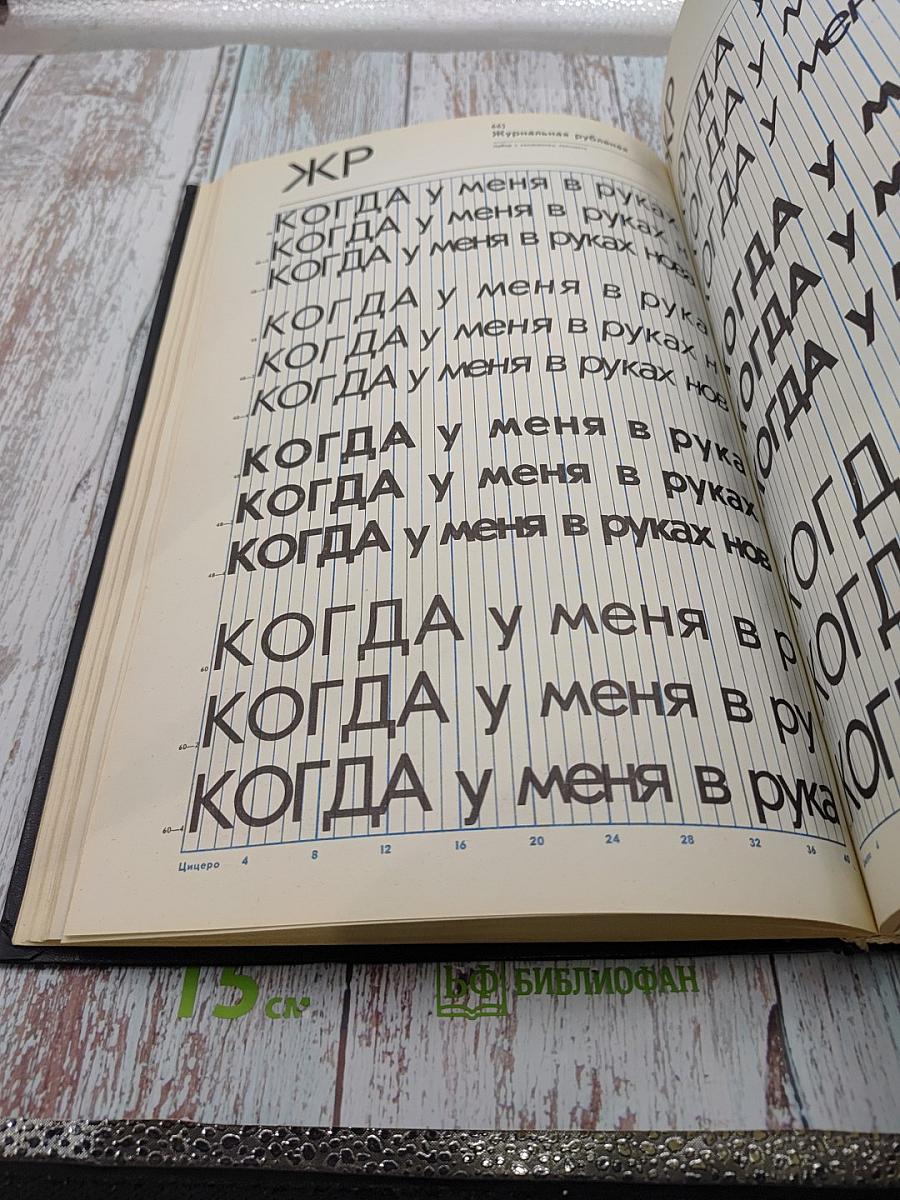 ЖР
Журнальная рубленая
КОГДА у меня в рука
КОГДА у меня в руках
КОГДА у меня в руках нова
КОГДА у меня в рука
КОГДА у меня в руках н
КОГДА у меня в руках нов
КОГДА у меня в рука
КОГДА у меня в руках
КОГДА у меня в руках нов
60 КОГДА у меня в р
60—2 КОГДА у меня в ру
60—4 КОГДА у меня в рука
Цицеро 4 8 12 16 20 24 28 32 36 40
КОГДА у м
КОГДА у м
КОГД
КОГД
КОГ
15 см.
БФ БИБЛИОФАН